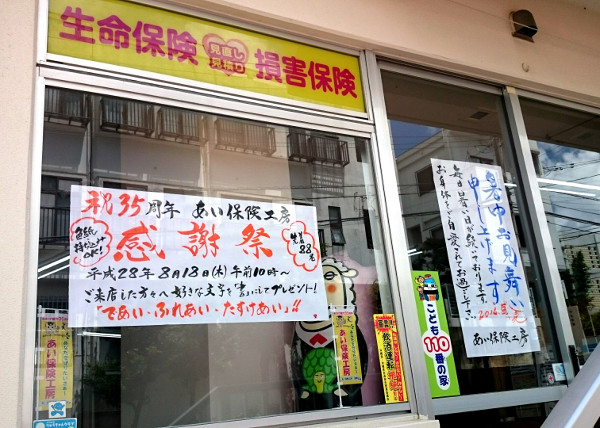 生命保険
見直し
見積り
損害保険
祝35周年 あい保険工房
感謝祭
色紙
持ち込み
OK!
先着
88名
平成28年8月18日(木)午前10時〜
ご来店した方々へ好きな文字を「書」にしてプレゼント!
"であい・ふれあい・たすけあい"!!
暑中お見舞い
申し上げます
毎日暑い日が続いております。
お身体をご自愛されてお過ごし下さい
2016. 夏
あい保険工房
こども
110番の家
あい保険工房
あい保険工房
飲酒運転